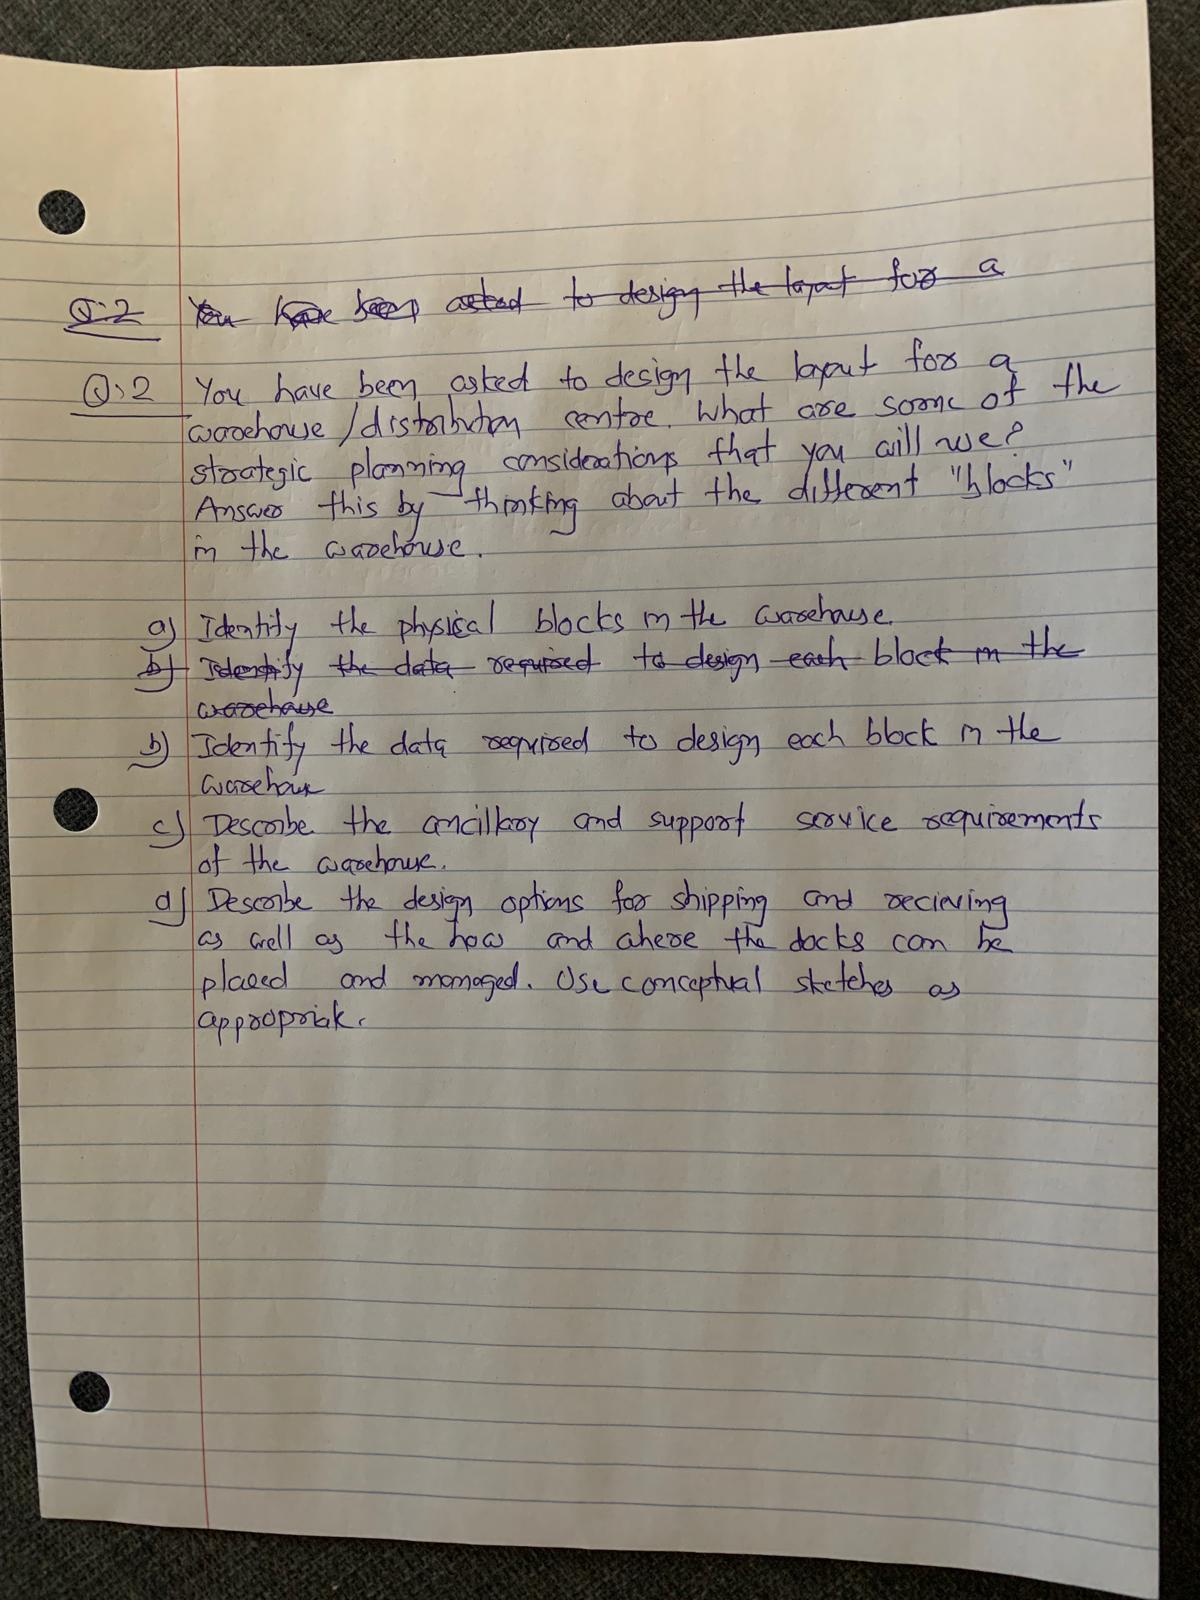 Q:2 You have been asked to design the layout for a
Q:2 You have been asked to design the layout for a
warehouse/distribution centre. What are some of the
strategic planning considerations that you will use?
Answer this by thinking about the different "blocks"
in the warehouse.
a) Identify the physical blocks in the warehouse.
b) Identify the data required to design each block in the
warehouse
b) Identify the data required to design each block in the
warehouse
c) Describe the ancillary and support service requirements
of the warehouse.
d) Describe the design options for shipping and recieving
as well as the how and where the docks can be
placed and managed. Use conceptual sketches as
appropriate.